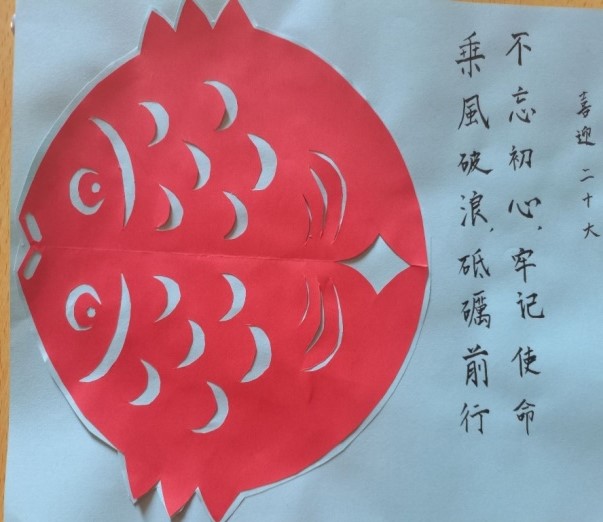 喜迎二十大
不忘初心,牢记使命
乘風破浪,砥礪前行